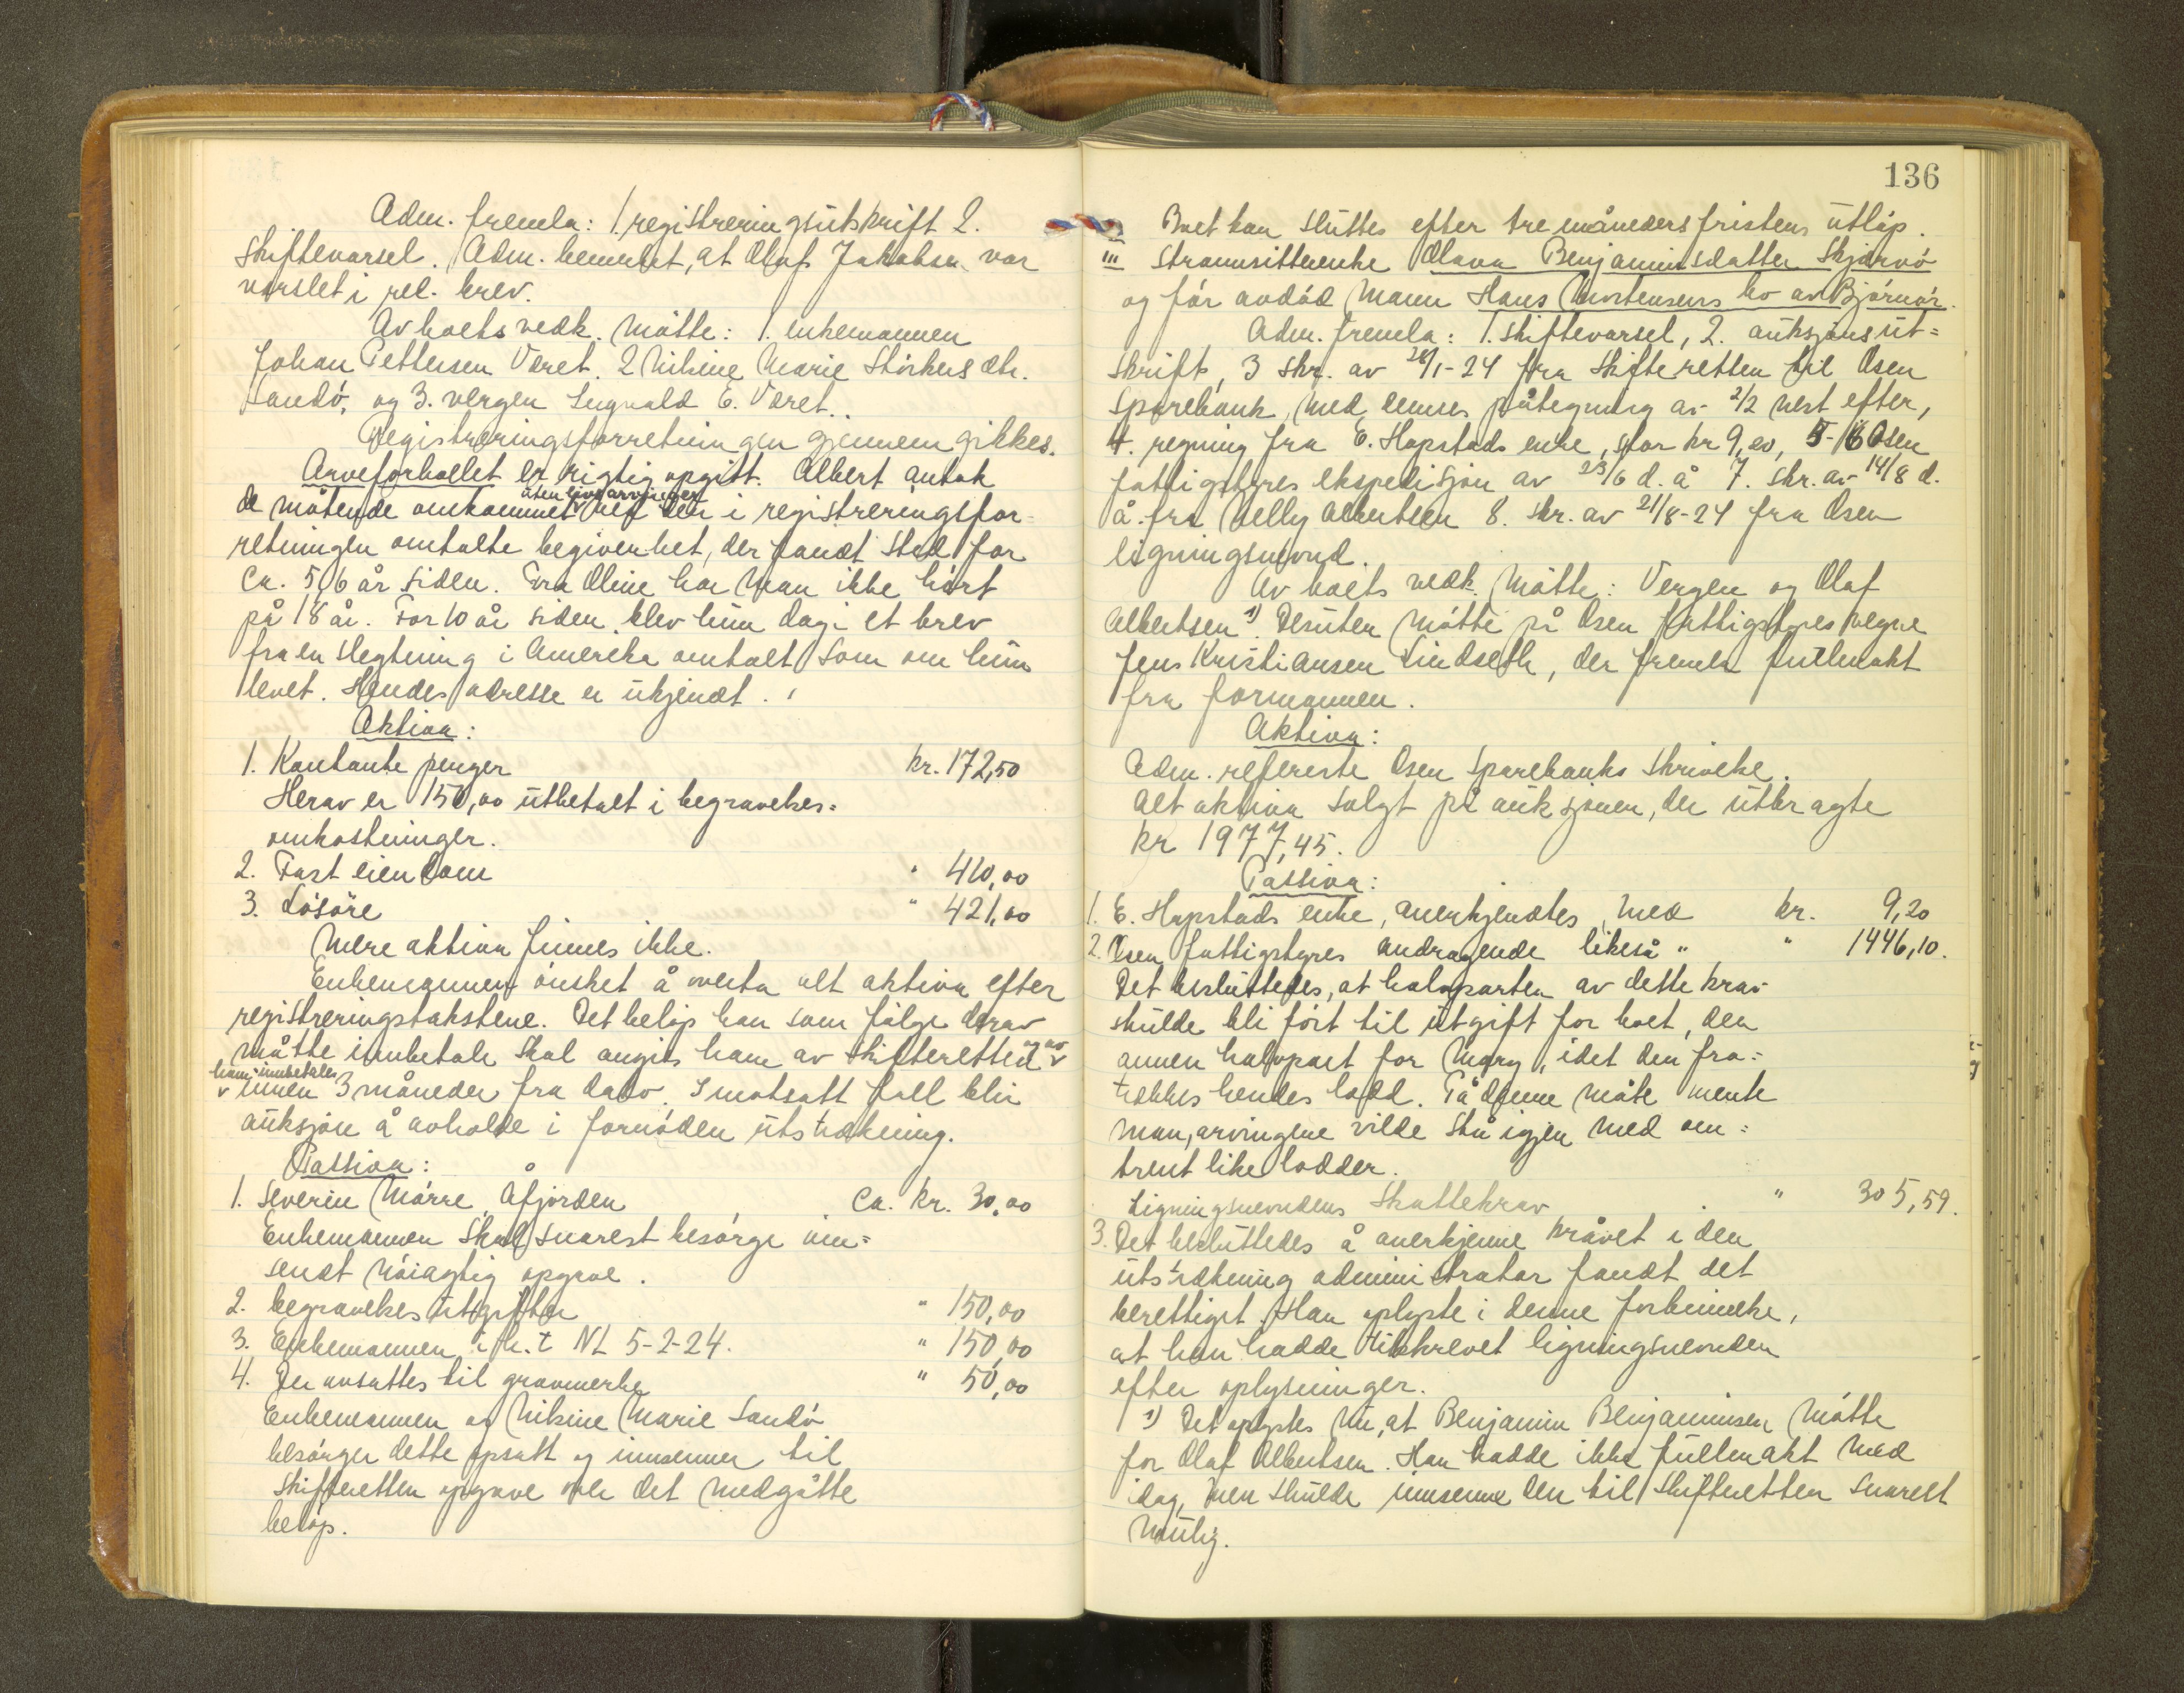 Adm. fremla: 1. registreringsutskrift 2.
Skiftevarsel. Adm. bemerket, at Olaf Jakobsen var
varslet i rek. brev.
Av boets vedk. møtte: 1. enkemannen
Johan Pettersen Været. 2 Nikine Marie Størkersdtr.
Sandø, og 3. vergen Sigvald E. Været.
Registreringsforretningen gjennemgikkes.
Arveforholdet er rigtig opgitt. Albert antok
uten livsarvinger
de møtende omkommet ved den i registreringsfor-
retningen omtalte begivenhet, der fandt sted for
ca. 5/6 år siden. Fra Oline har man ikke hørt
på 18 år. For 10 år siden blev hun dog i et brev
fra en slegtning i Amerika omtalt som om hun
levet. Hendes adresse er ukjendt.
Aktiva:
1. Kontante penger kr. 172,50
Herav er 150,00 utbetalt i begravelses-
omkostninger.
2. Fast eiendom " 410,00
3. Løsøre " 421,00
Mere aktiva finnes ikke.
Enkemannen ønsket å overta alt aktiva efter
registreringstakstene. Det beløp han som følge derav
måtte innbetale skal angis ham av skifteretten og av
ham innbetales
innen 3 måneder fra dato. I motsatt fall blir
auksjon å avholde i fornøden utstrekning.
Passiva:
1. Severin Mørre, Åfjorden ca. kr. 30,00
Enkemannen skal snarest besørge inn-
sendt nøiagtig opgave.
2. begravelsesutgifter " 150,00
3. Enkemannen i h. t NL 5-2-24. " 150,00
4. Der avsattes til gravmerke " 50,00
Enkemannen og Nikine Marie Sandø
besørger dette opsatt og innsenner til
skifteretten opgave over det medgåtte
beløp.
136
Boet kan sluttes efter tre måneders fristens utløp.
III Strannsitterenke Olava Benjaminsdatter Skjærvø
og før avdød mann Hans Mortensens bo av Bjørnør.
Adm. fremla: 1. skiftevarsel, 2. auksjonsut-
skrift, 3 skr. av 28/1-24 fra skifteretten til Osen
Sparebank, med dennes påtegning av 2/2 nest efter,
4. regning fra E. Hopstads enke, stor kr 9,20, 5-6 Osen
fattigstyres ekspedisjon av 23/6 d. å 7. skr. av 14/8 d.
å. fra Nelly Albertsen 8. skr. av 21/8-24 fra Osen
ligningsnevnd.
Av boets vedk. møtte: Vergen og Olaf
Albertsen 1). Desuten møtte på Osen fattigstyres vegne
Jens Kristiansen Lindseth, der fremla fullmakt
fra formannen.
Aktiva:
Adm. refererte Osen Sparebanks skrivelse.
Alt aktiva solgt på auksjonen, der utbragte
kr 1977,45.
Passiva:
1. E. Hopstads enke, anerkjendtes med kr. 9,20
2. Osen fattigstyres andragende likeså " " 1446,10.
Det besluttedes, at halvparten av dette krav
skulde bli ført til utgift for boet, den
annen halvpart for Mary, idet den fra-
trekkes hendes lodd. På denne måte mente
man, arvingene vilde stå igjen med om-
trent like lodder.
Ligningsnevndens Skattekrav " 305,59.
3. Det besluttedes å anerkjenne kravet i den
utstrekning administrator fandt det
berettiget. Han oplyste i denne forbindelse,
at han hadde tilskrevet ligningsnevnden
efter oplysninger.
1) Det oplystes nu, at Benjamin Benjaminsen møtte
for Olaf Albertsen. Han hadde ikke fullmakt med
idag, men skulde innsenne den til skifteretten snarest
mulig.